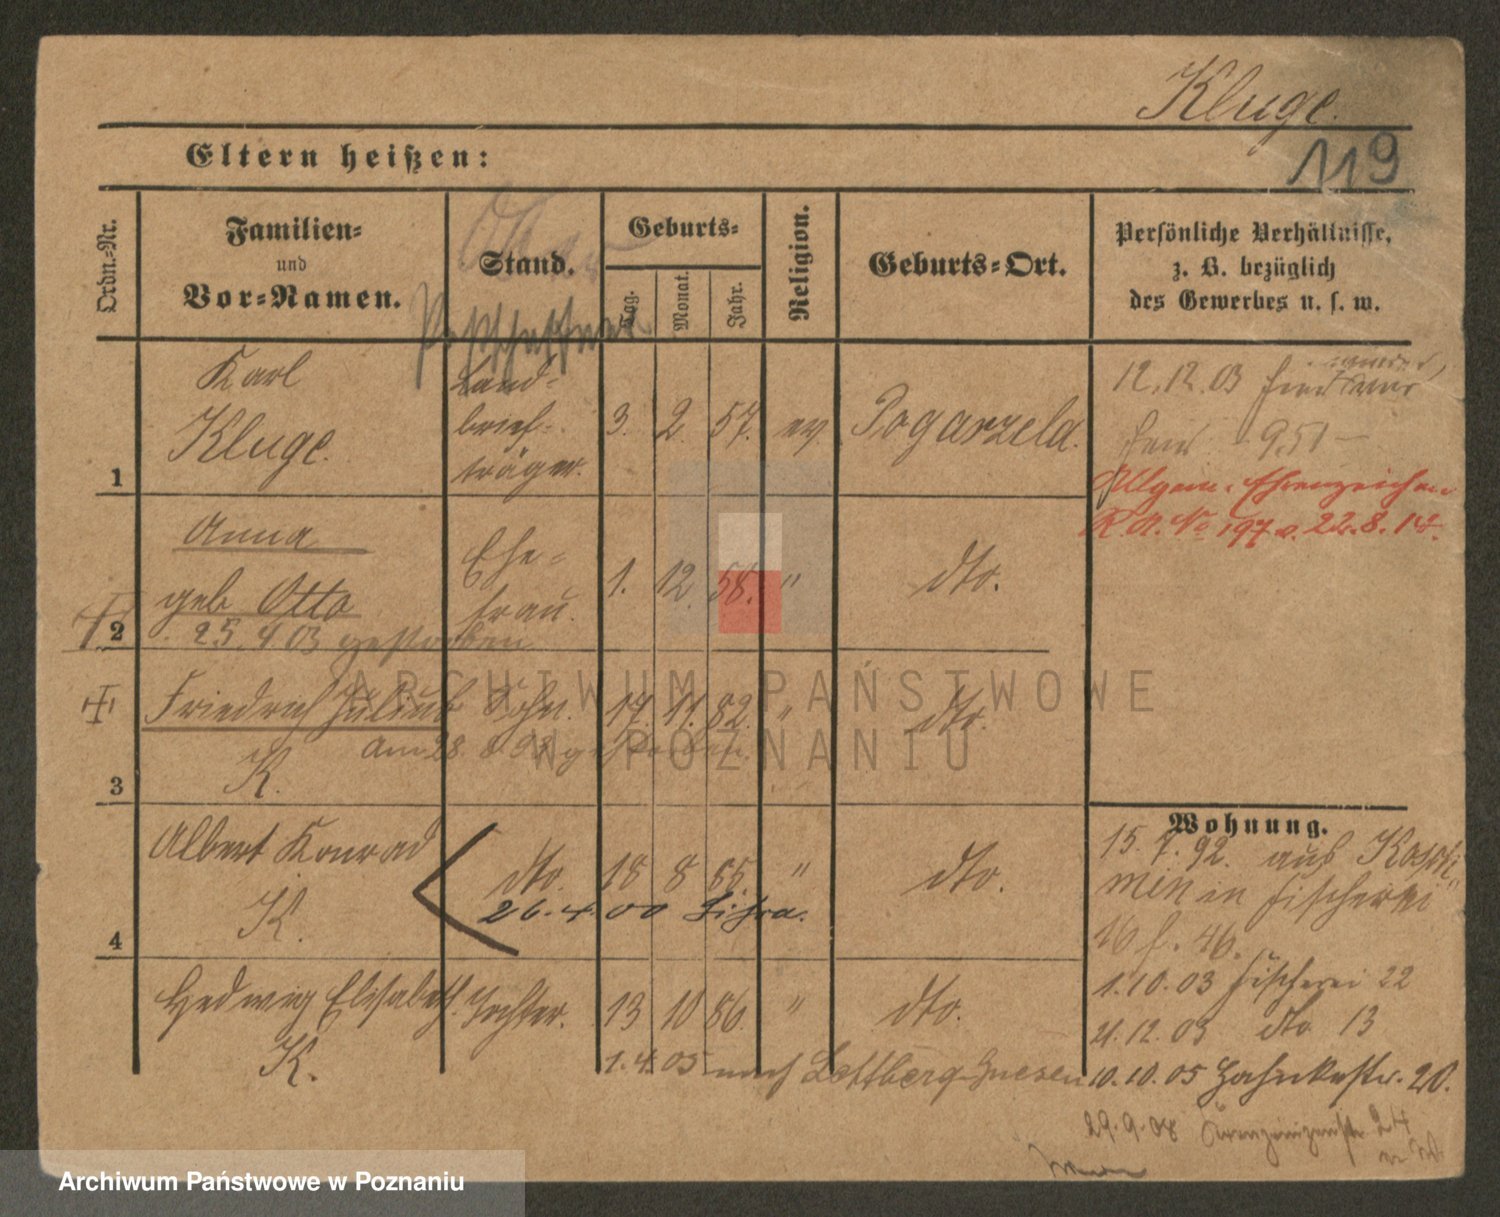 Kluge.
119
Eltern heißen:
Ordn.-Nr.
Familien-
und
Vor-Namen.
Stand.
Geburts-
Tag.
Monat.
Jahr.
Religion.
Geburts-Ort.
Persönliche Verhältnisse,
z. B. bezüglich
des Gewerbes u. s. w.
Postschaffner
1
Karl
Kluge.
Land-
brief-
träger.
3. 2. 57. ev. Pogarzela.
12.12.03
951 —
Allgem. Ehrenzeichen
K.A. No 197 v. 22.8.14.
2
Anna
geb. Otto
Ehe-
frau.
1. 12. 58. " dto.
25.4 03 gestorben
3
Friedrich Julius Sohn. 17. 11. 82. " dto.
am 28. 8. 98 gestorben.
K.
4
Albert Konrad
K.
dto. 18 8 85. " dto.
26.4.00 Lissa.
Hedwig Elisabeth Tochter. 13 10 86. " dto.
K.
1.4.05 nach Lettberg-Gnesen
Wohnung.
15.7.92. aus Koschmin in Fischerei
16 f. 46.
1.10.03 Fischerei 22
21.12.03 dto 13
10.10.05 20.
29.9.08 24
ARCHIWUM PAŃSTWOWE
W POZNANIU
Archiwum Państwowe w Poznaniu